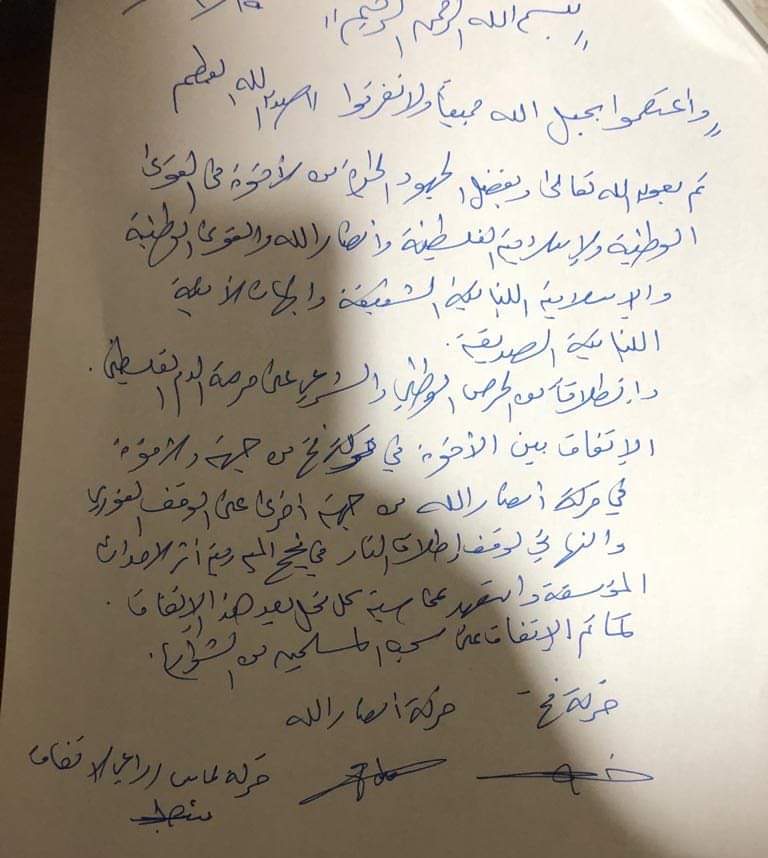 "بسم الله الرحمن الرحيم"
"واعتصموا بحبل الله جميعاً ولا تفرقوا" صدق الله العظيم
تم بعون الله تعالى وبفضل الجهود الخيرة من الأخوة في القوى
الوطنية والإسلامية الفلسطينية وأنصار الله والقوى الوطنية
والإسلامية اللبنانية الشقيقة والجهات الأمنية
اللبنانية الصديقة.
وانطلاقاً من الحرص الوطني والشرعي على حرمة الدم الفلسطيني.
الإتفاق بين الأخوة في حركة فتح من جهة والأخوة
في حركة أنصار الله من جهة أخرى على الوقف الفوري
والنهائي لوقف إطلاق النار في مخيم المية ومية أثر الأحداث
المؤسفة والتعهد بمحاسبة كل مخل بعد هذا الإتفاق.
كما تم الإتفاق على سحب المسلحين من الشوارع.
حركة فتح
حركة أنصار الله
حركة حماس راعي الاتفاق